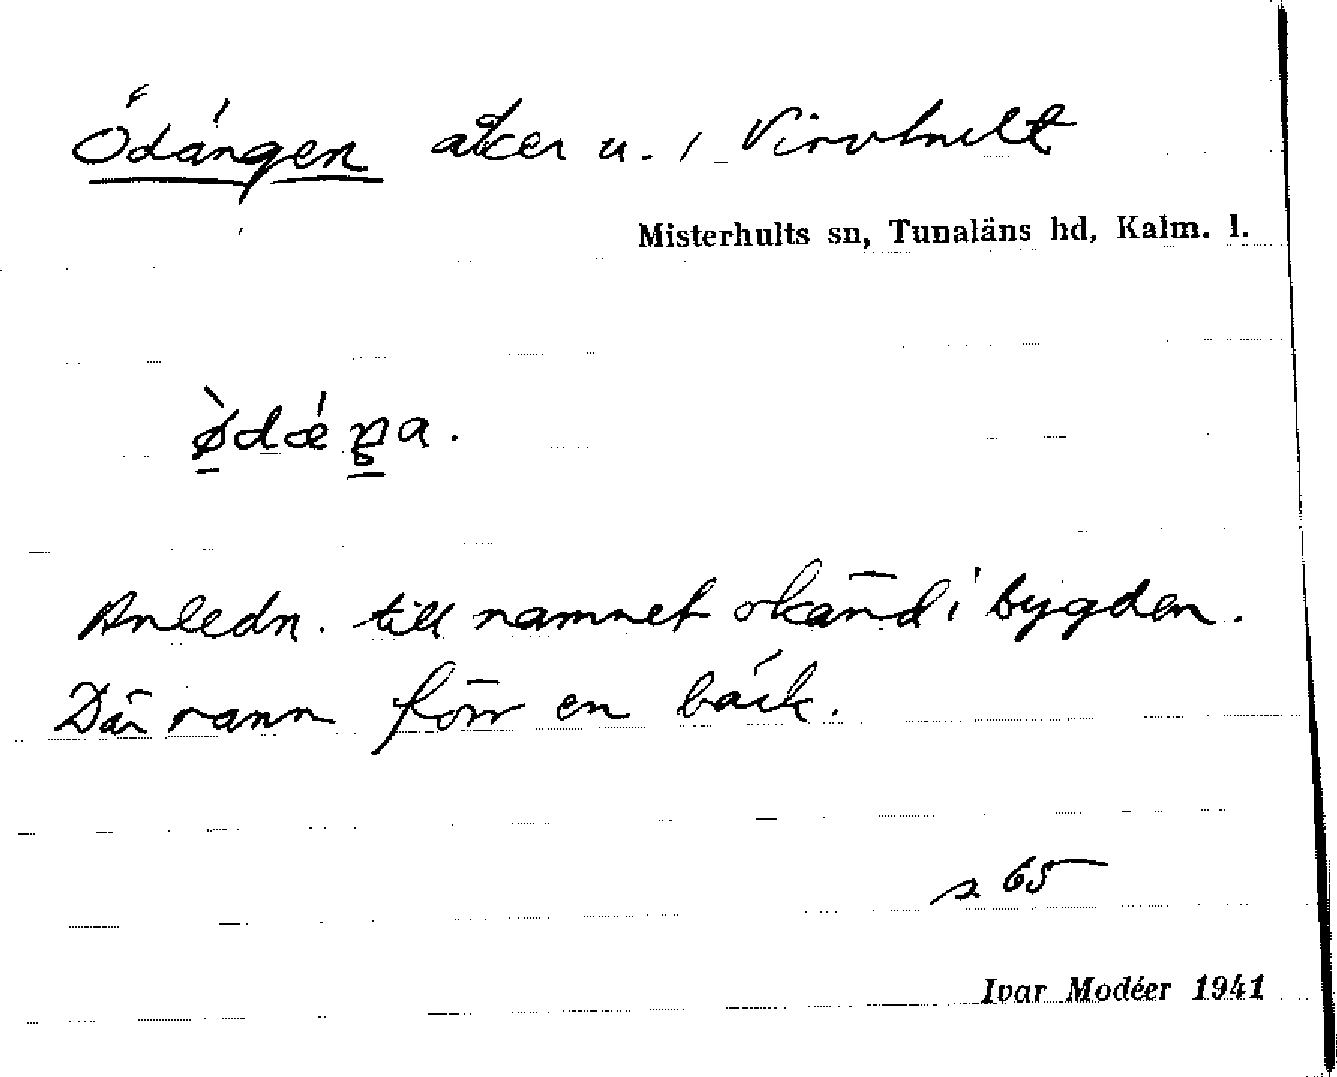 Ödängen åker u. 1 Virvhult
Misterhults sn, Tunaläns hd, Kalm. l.
ø̀dǽŋa.
Anledn. till namnet okänd i bygden.
Där rann förr en bäck.
s 65
Ivar Modéer 1941